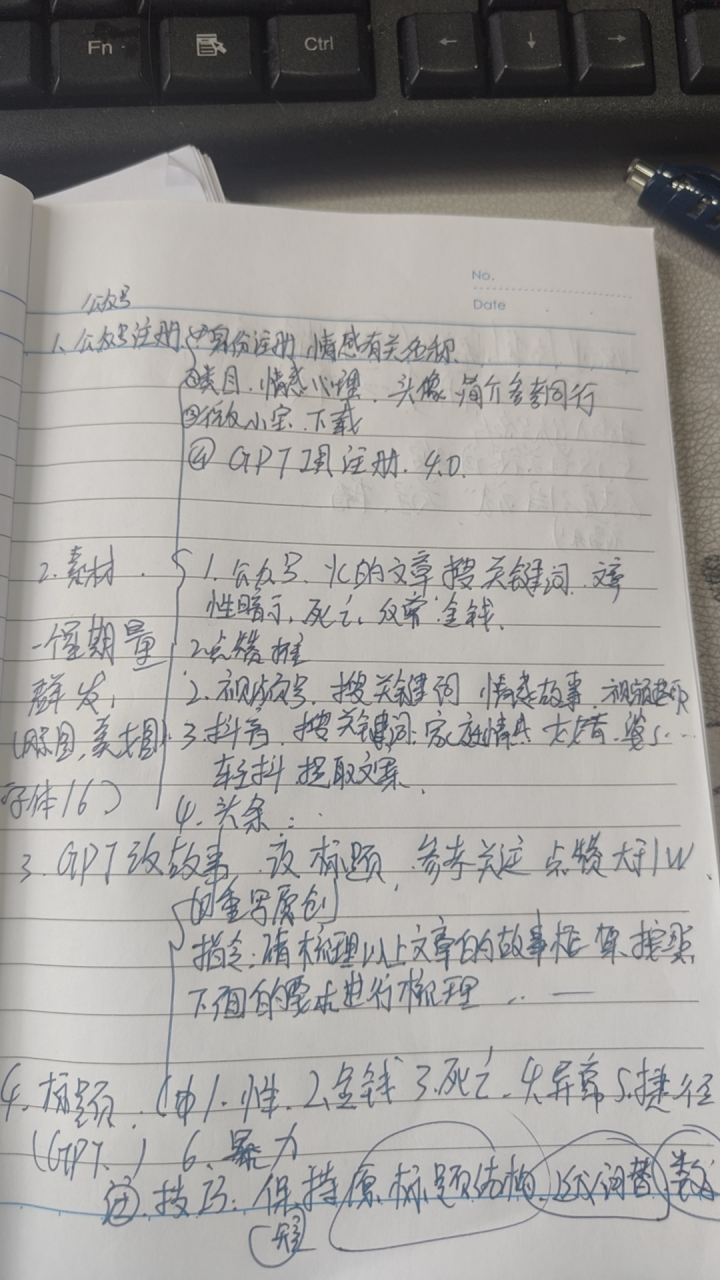 Fn
Ctrl
←
↓
→
No.
Date
公众号
1、公众号注册 ①身份注册,情感有关名称.
②类目.情感心理.头像.简介参考同行
③ 小宝.下载
④ GPT 注册.4.0.
2.素材.
1.公众号、 的文章搜关键词.文章
性暗示,死亡,反常.金钱.
一个星期量
2.点赞
群发,
2.视频号,搜关键词 情感故事.视频
(原图,美女图)
3.抖音.搜关键词:家庭情感 大 .婆
字体16)
轻抖 提取文案.
4.头条:
3、GPT改故事,改标题,参考关注 点赞大于1W
重写原创
指令:请梳理以上文章的故事框架.按照
下面的要求进行梳理 ...—
4.标题.(① 1.性.2.金钱 3.死亡.4.异常 5.捷径
(GPT.) 6、暴力
②.技巧:保持原标题结构, 词替